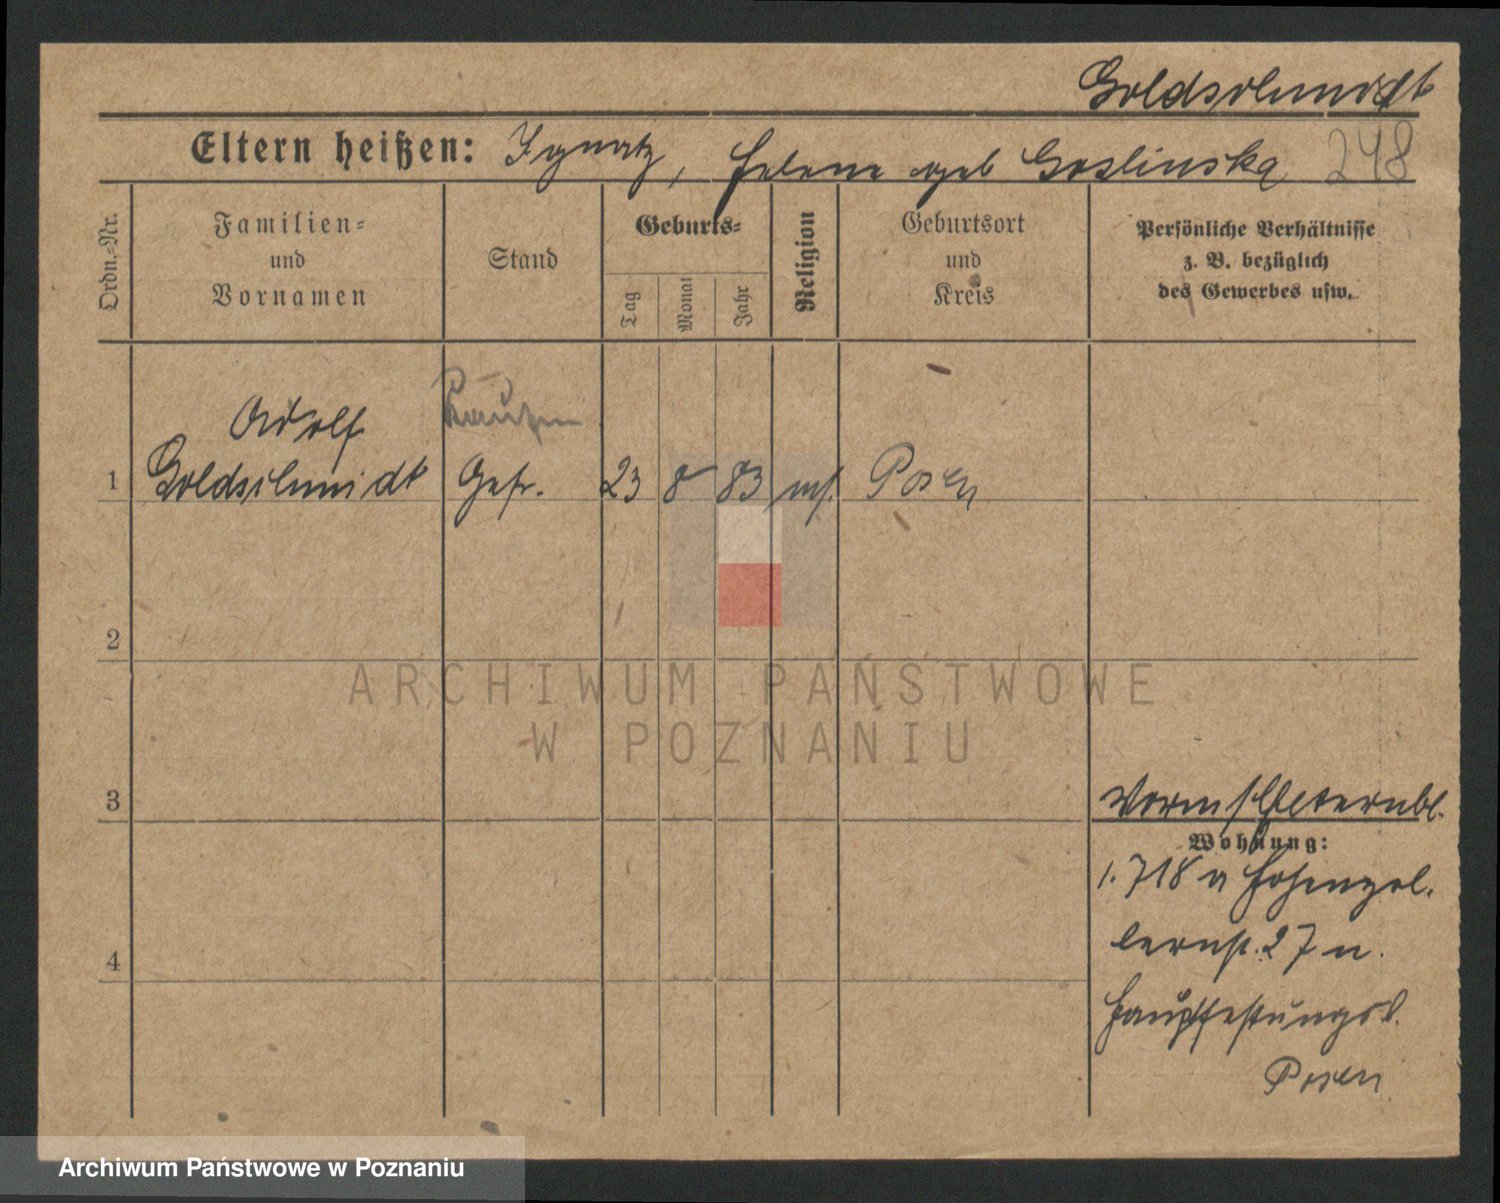 Goldschmidt
Eltern heißen: Ignatz, Helene geb Goslinska 248
Ordn.-Nr.
Familien-
und
Vornamen
Stand
Geburts-
Tag
Monat
Jahr
Religion
Geburtsort
und
Kreis
Persönliche Verhältnisse
z. B. bezüglich
des Gewerbes usw.
Adolf
Kaufm
1 Goldschmidt Gefr. 23 8 83 Posen
2
3
Elternbl.
Wohnung:
1.7.18 v Hohenzol.
lernst. 27 n.
Posen
4
ARCHIWUM PAŃSTWOWE
W POZNANIU
Archiwum Państwowe w Poznaniu